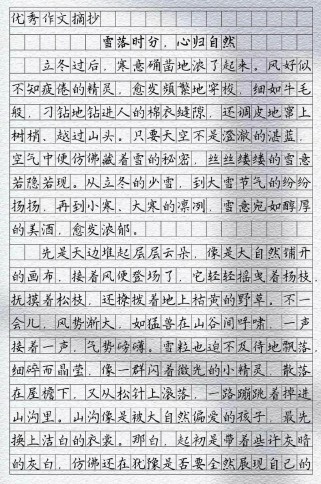 优秀作文摘抄
雪落时分，心归自然
立冬过后，寒意确凿地浓了起来。风好似
不知疲倦的精灵，愈发频繁地穿梭，细如牛毛
般，刁钻地钻进人的棉衣缝隙，还调皮地窜上
树梢、越过山头。只要天空不是澄澈的湛蓝，
空气中便仿佛藏着雪的秘密，丝丝缕缕的雪意
若隐若现。从立冬的少雪，到大雪节气的纷纷
扬扬，再到小寒、大寒的凛冽，雪意宛如醇厚
的美酒，愈发浓郁。
先是天边堆起层层云朵，像是大自然铺开
的画布，接着风便登场了，它轻轻摇曳着杨枝，
抚摸着松枝，还撩拨着地上枯黄的野草。不一
会儿，风势渐大，如猛兽在山谷间呼啸，一声
接着一声，气势磅礴。雪粒也迫不及待地飘落，
细碎而晶莹，像一群闪着微光的小精灵，散落
在屋檐下，又从松针上滚落，一路蹦跳着掉进
山沟里。山沟像是被大自然偏爱的孩子，最先
换上洁白的衣裳。那白，起初是带着些许灰暗
的灰白，仿佛还在犹豫是否要全然展现自己的